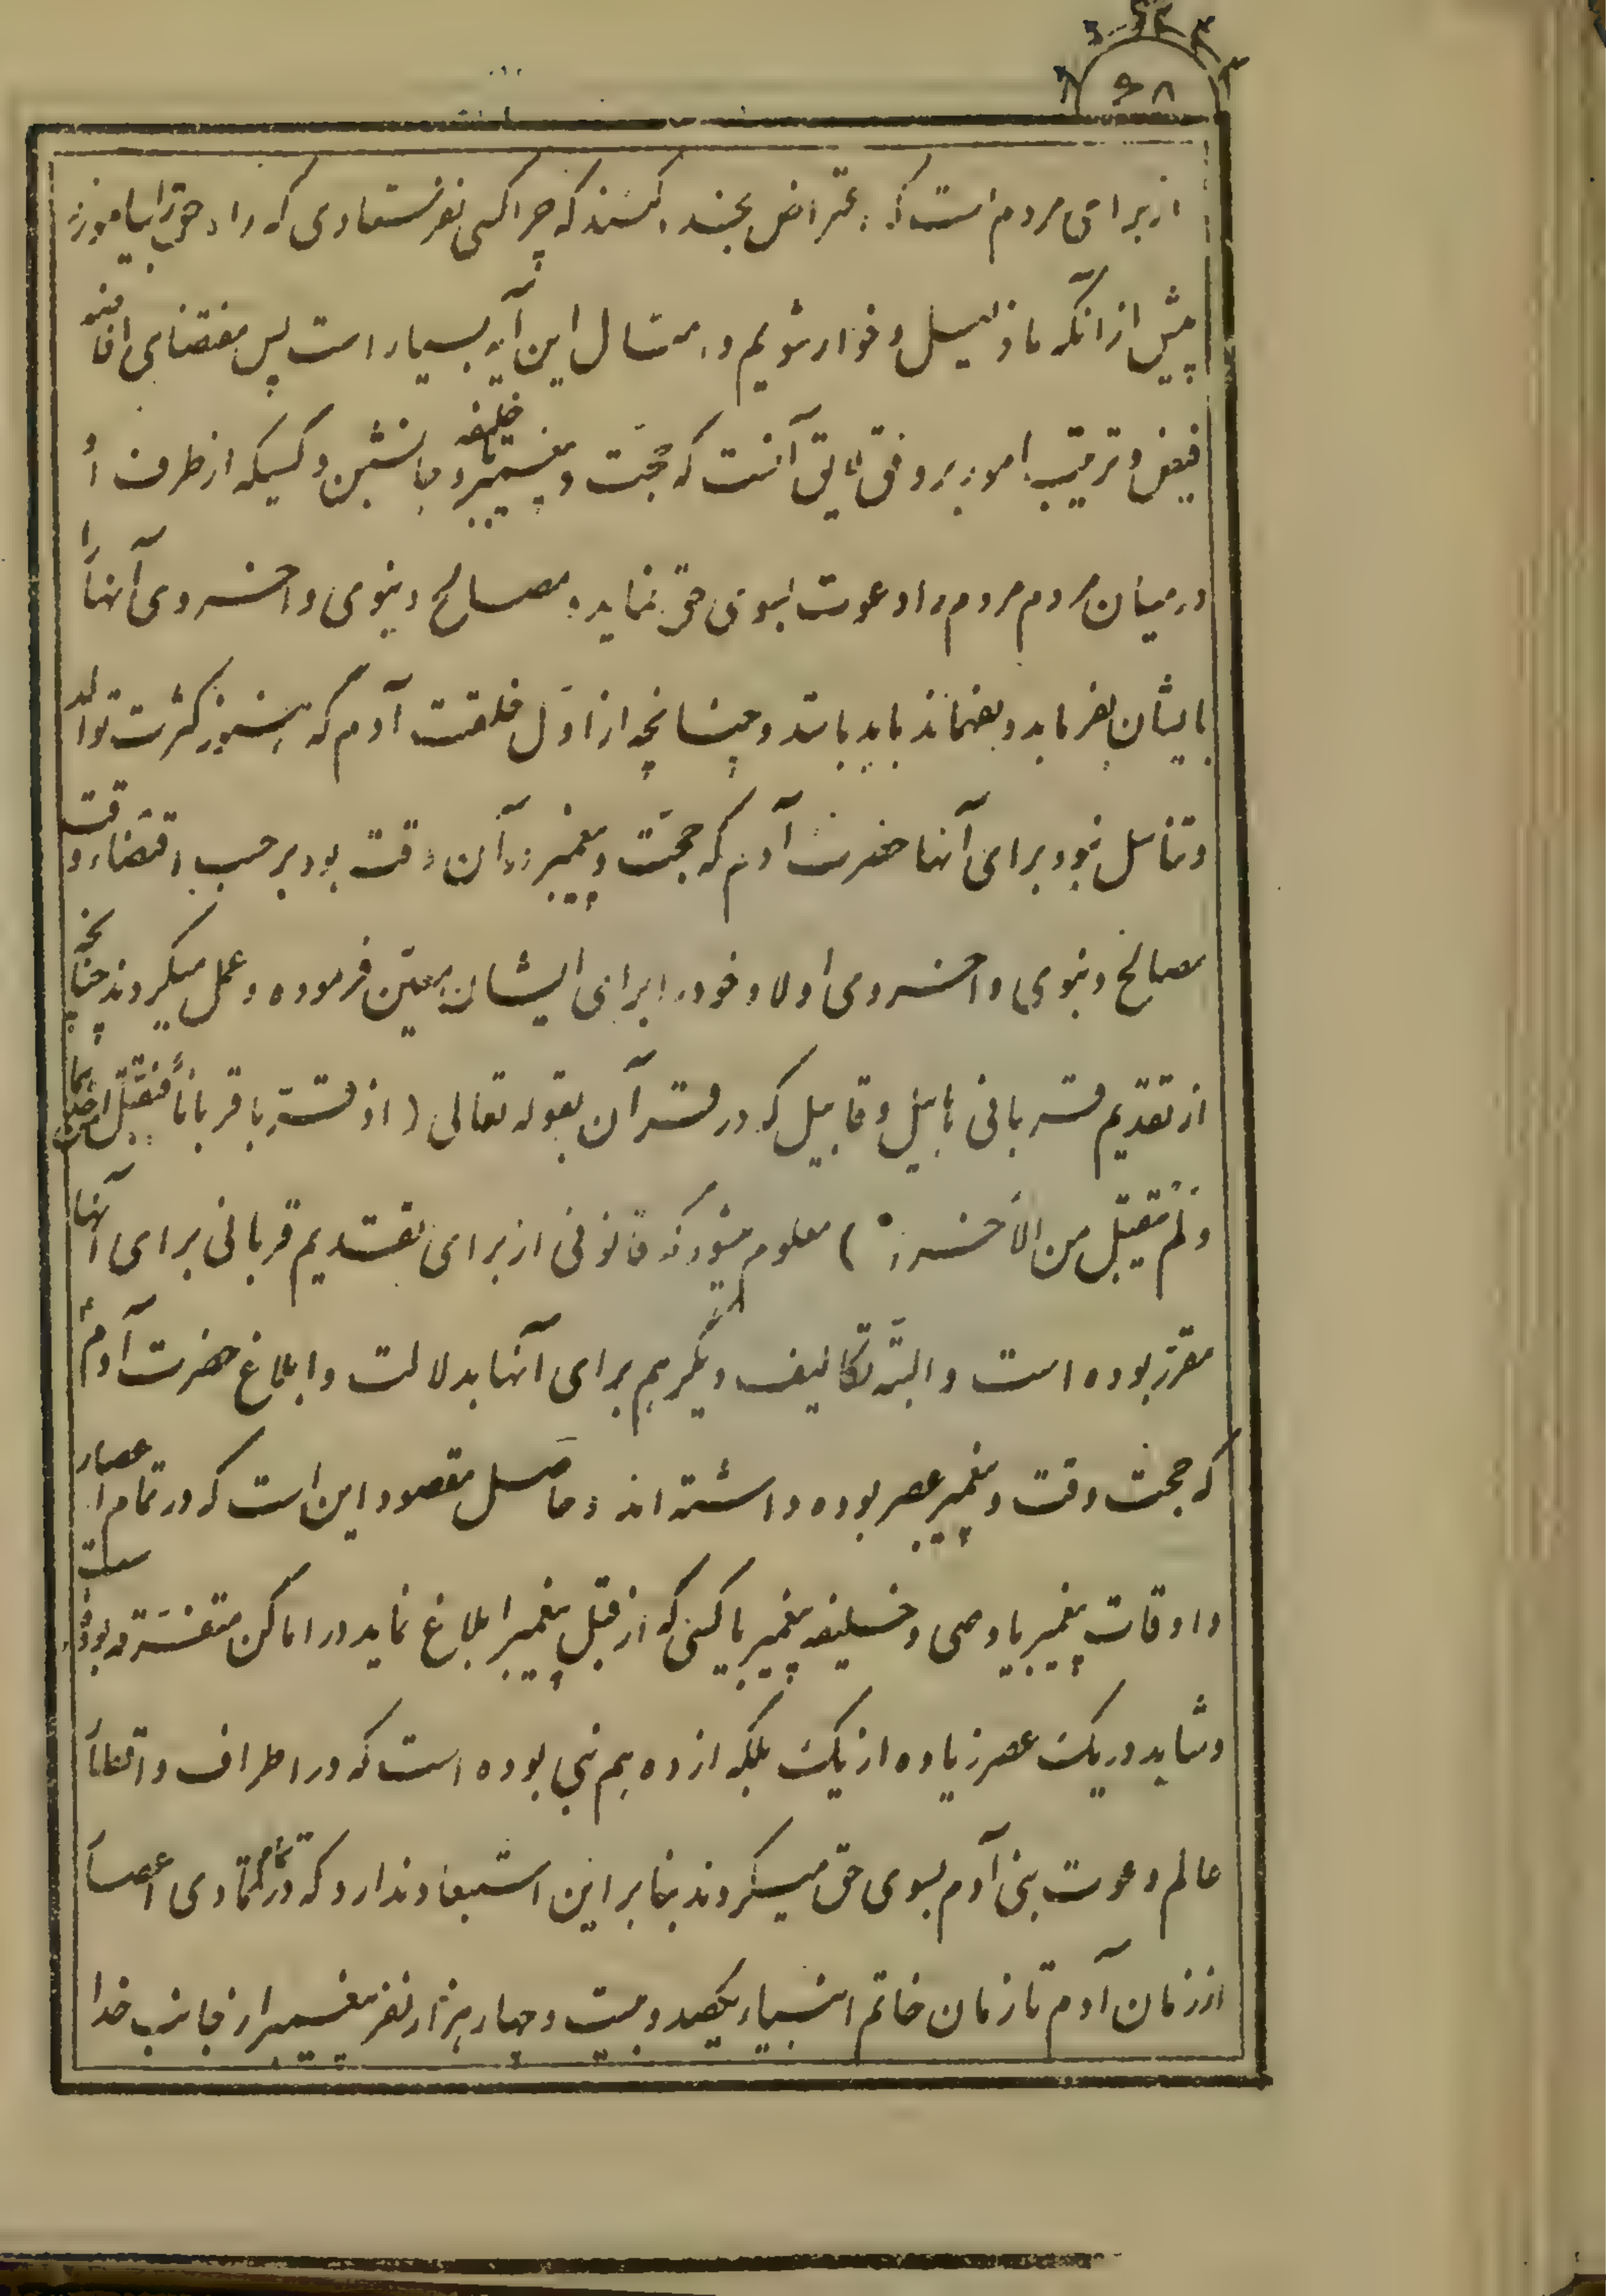 ۶۸
از برای مردم است که اعتراض بخند اکنند که چرا کسی نفرستادی که راه حق را بیاموزد
پیش از آنکه ما ذلیل و خوار شویم و امثال این آیه بسیار است پس مقتضای افاضه
فیض و ترتیب امور بر وفق لایق آنست که حجّت و پیغمبر و خلیفه و جانشین و کسیکه از طرف او
در میان مردم مردم را دعوت بسوی حق نماید و مصالح دنیوی و اخروی آنها را
بایشان بفرماید و بفهماند باید باشد و چنانچه از اوّل خلقت آدم که هنوز کثرت توالد
و تناسل نبود برای آنها حضرت آدم که حجّت و پیغمبر در آن وقت بود بر حسب اقتضاء وقت
مصالح دنیوی و اخروی اولاد خود را برای ایشان معیّن فرموده و عمل میکردند چنانچه
از تقدیم قربانی هابیل و قابیل که در قرآن بقوله تعالی ( اذ قرّبا قرباناً فتقبّل من احدهما
و لم یتقبّل من الآخر ) معلوم میشود که قانونی از برای تقدیم قربانی برای آنها
مقرّر بوده است و البتّه تکالیف دیگر هم برای آنها بدلالت و ابلاغ حضرت آدم
که حجت وقت و پیغمبر عصر بوده داشته اند و حاصل مقصود این است که در تمام اعصار
و اوقات پیغمبر یا وصی و خلیفه پیغمبر یا کسی که از قبل پیغمبر ابلاغ نماید در اماکن متفرقه بوده است
و شاید در یک عصر زیاده از یک بلکه از ده هم نبی بوده است که در اطراف و اقطار
عالم دعوت بنی آدم بسوی حق میکردند بنابراین استبعاد ندارد که در تمام تمادی اعصار
از زمان آدم تا زمان خاتم انبیاء یکصد و بیست و چهار هزار نفر پیغمبر از جانب خدا